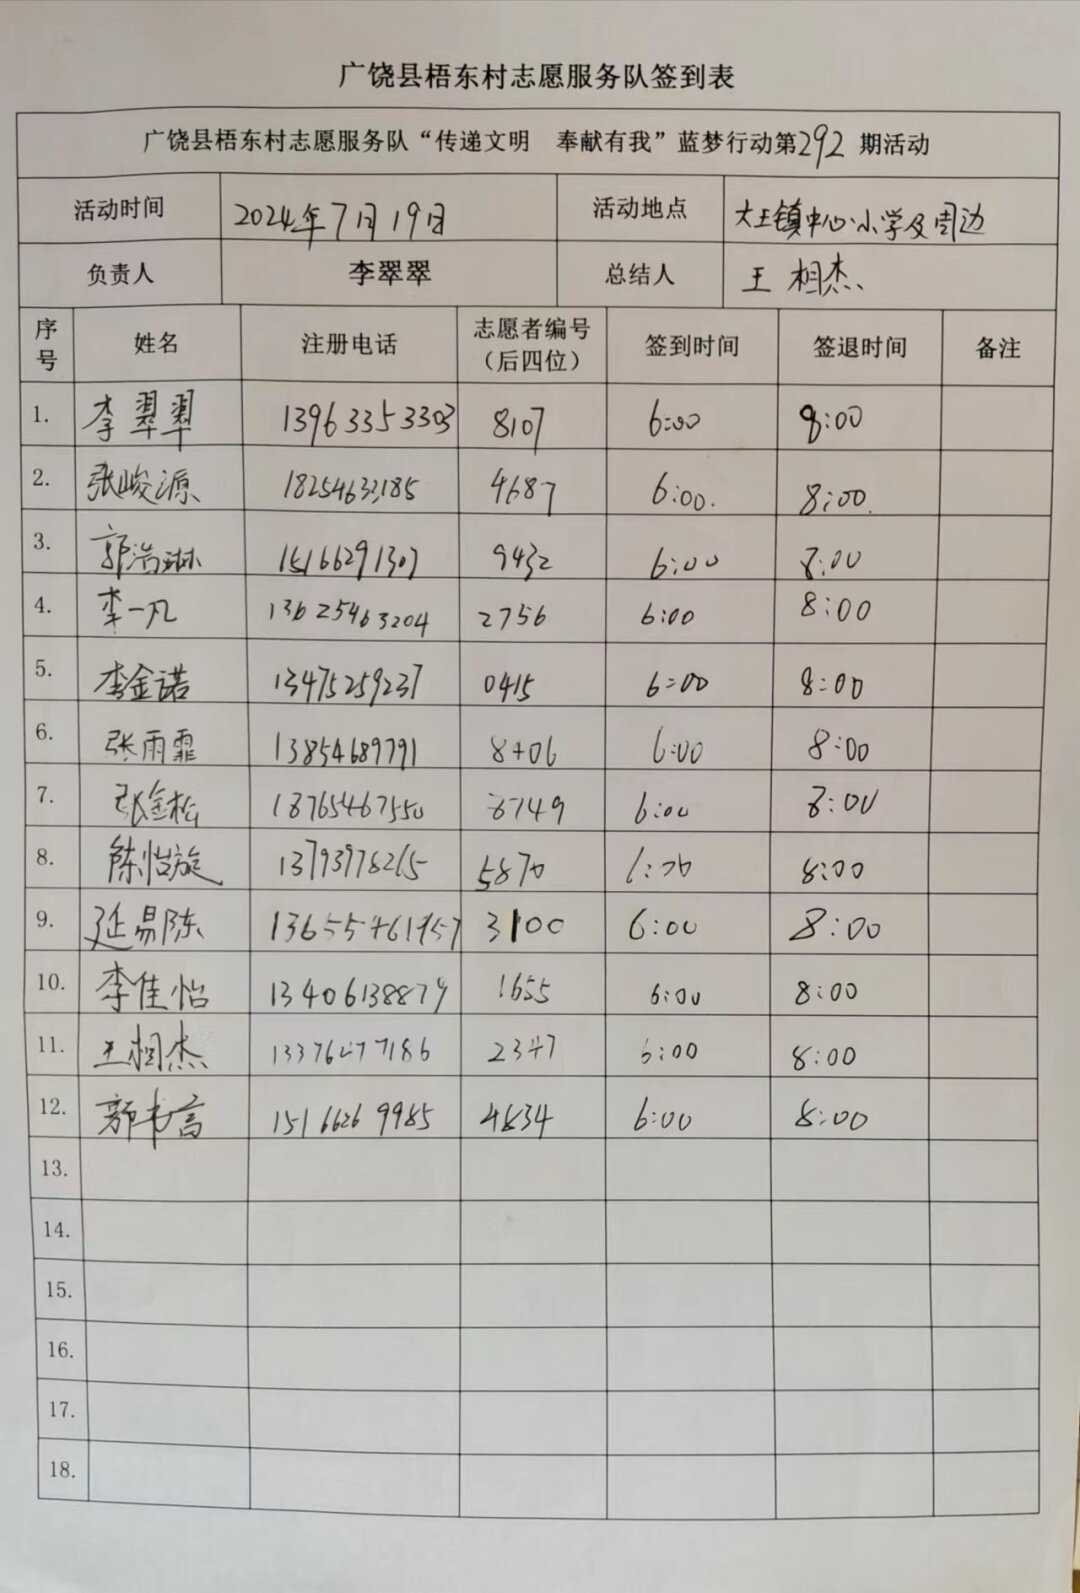 广饶县梧东村志愿服务队签到表
广饶县梧东村志愿服务队“传递文明 奉献有我”蓝梦行动第292期活动
活动时间 2024年7月19日 活动地点 大王镇中心小学及周边
负责人 李翠翠 总结人 王相杰
序号 姓名 注册电话 志愿者编号（后四位） 签到时间 签退时间 备注
1. 李翠翠 13963353303 8107 6:00 8:00
2. 张峻源 18254632185 4687 6:00. 8:00.
3. 郭浩琳 15166291307 9432 6:00 8:00
4. 李一凡 13625463204 2756 6:00 8:00
5. 李金诺 13475259237 0415 6:00 8:00
6. 张雨霏 13854689791 6:00 8:00
7. 张金松 18765467550 8749 6:00 8:00
8. 陈怡旋 13793978265 5870 8:00
9. 延易陈 3100 6:00 8:00
10. 李佳怡 13406138879 1655 6:00 8:00
11. 王相杰 13376477186 2347 6:00 8:00
12. 15166269985 4834 6:00 8:00
13.
14.
15.
16.
17.
18.